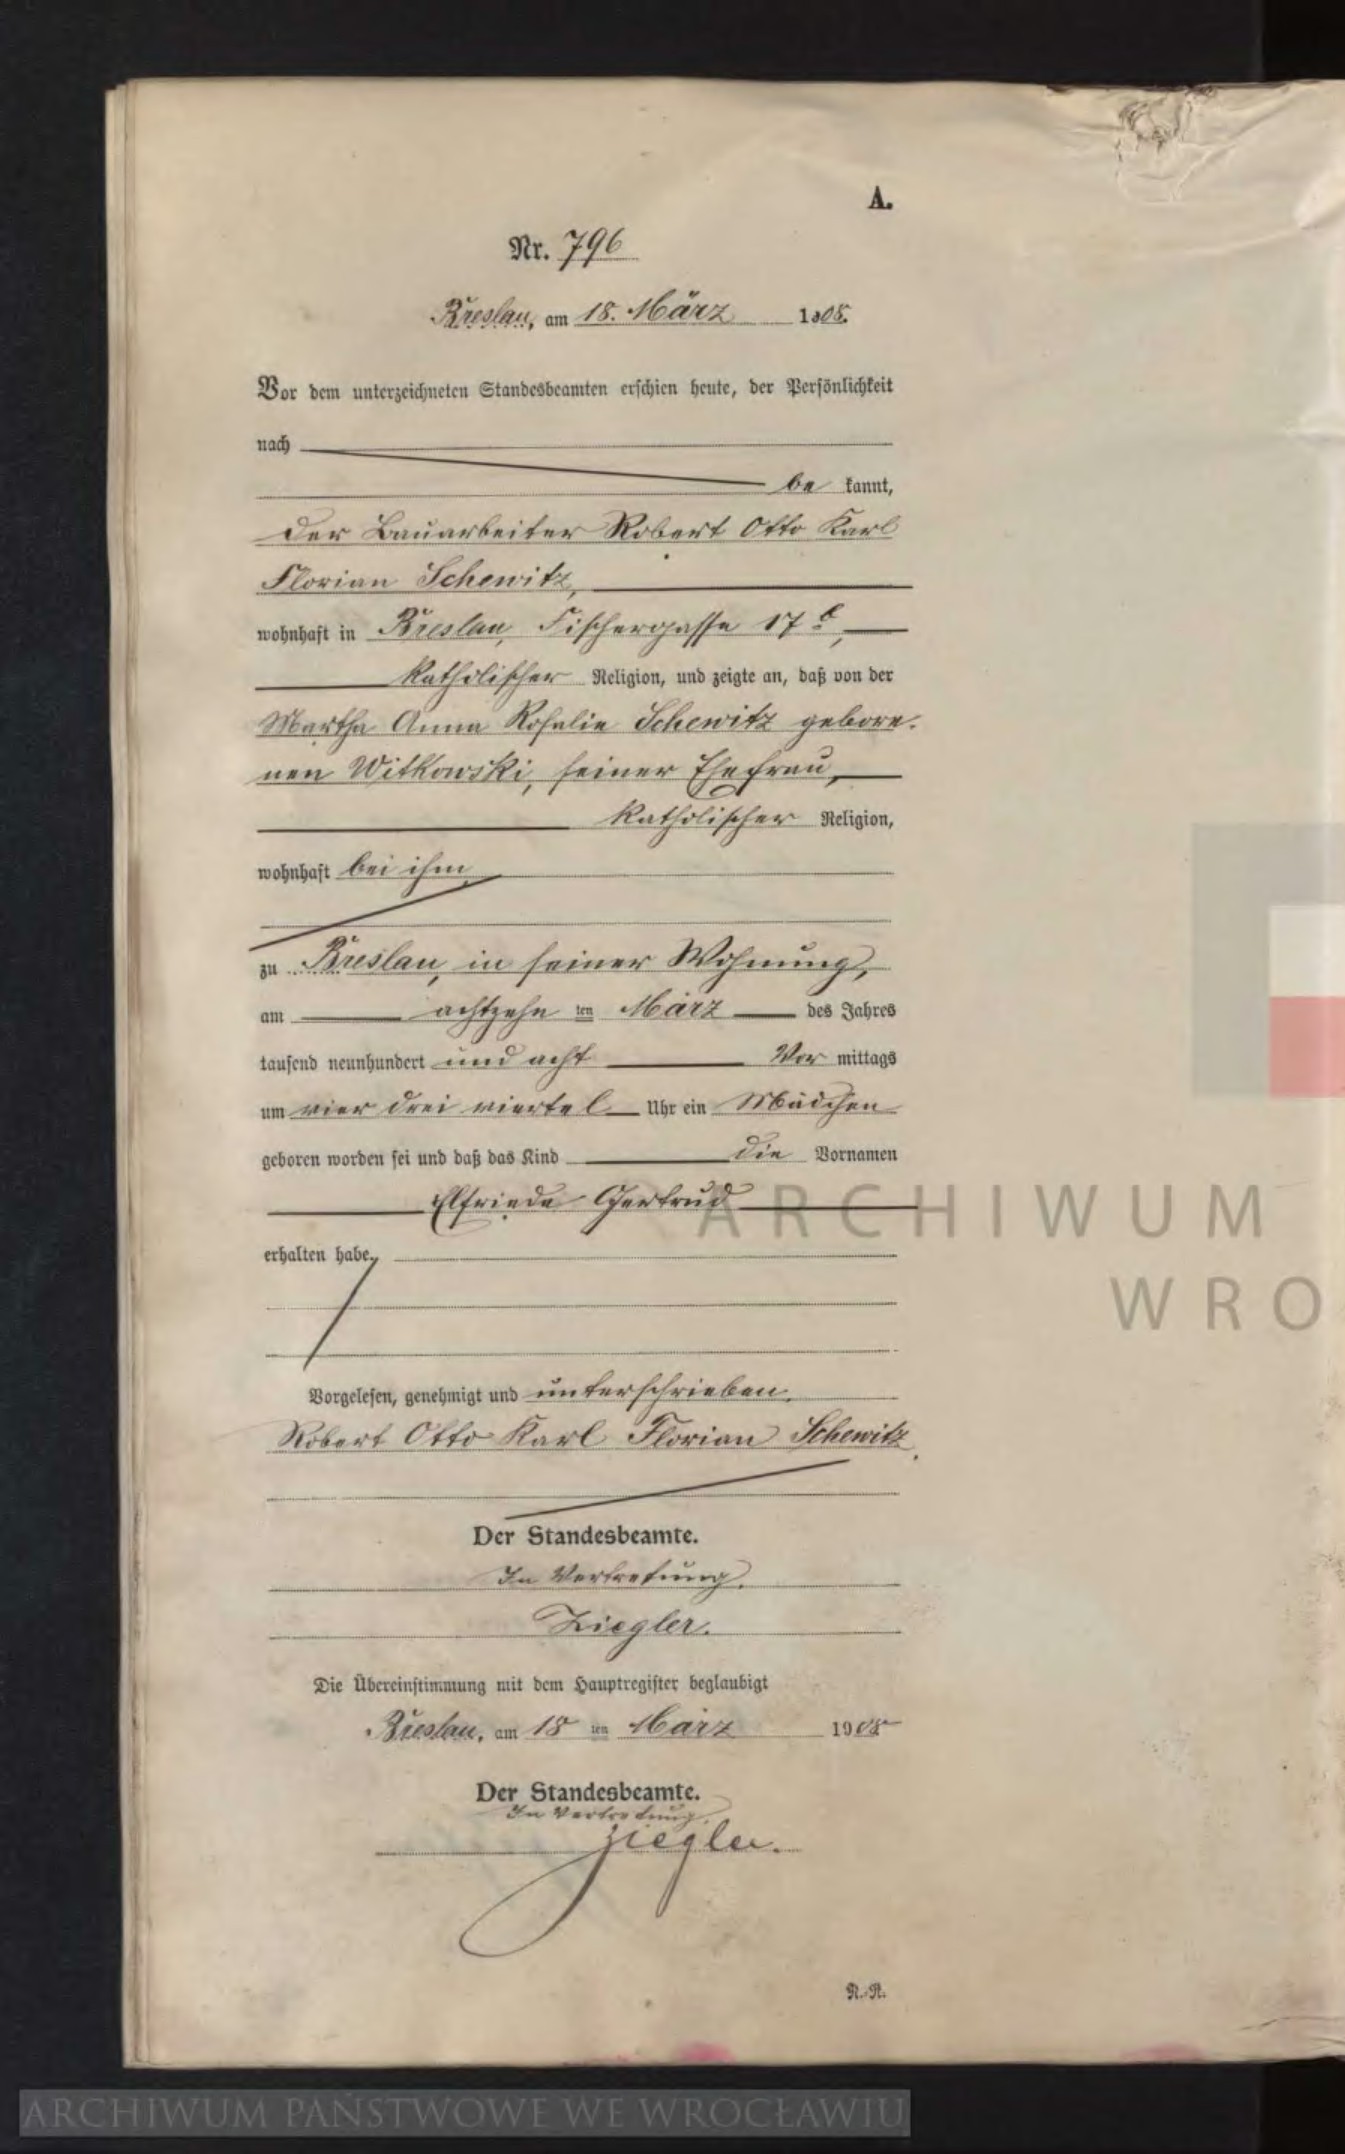 A.
Nr. 796
Breslau, am 18. März 1908.
Vor dem unterzeichneten Standesbeamten erschien heute, der Persönlichkeit
nach
be kannt,
der Bauarbeiter Robert Otto Karl
Florian Schewitz,
wohnhaft in Breslau, Fischergasse 17
katholischer Religion, und zeigte an, daß von der
Martha Anna Rosalie Schewitz gebore-
nen Witkowski, seiner Ehefrau,
katholischer Religion,
wohnhaft bei ihm
zu Breslau, in seiner Wohnung,
am achtzehn ten März des Jahres
tausend neunhundert und acht Vor mittags
um vier drei viertel Uhr ein Mädchen
geboren worden sei und daß das Kind die Vornamen
Elfriede Gertrud
erhalten habe.
Vorgelesen, genehmigt und unterschrieben.
Robert Otto Karl Florian Schewitz.
Der Standesbeamte.
In Vertretung.
Ziegler.
Die Übereinstimmung mit dem Hauptregister beglaubigt
Breslau, am 18 ten März 1908
Der Standesbeamte.
In Vertretung.
Ziegler.
R.-R.
ARCHIWUM
WRO
ARCHIWUM PAŃSTWOWE WE WROCŁAWIU